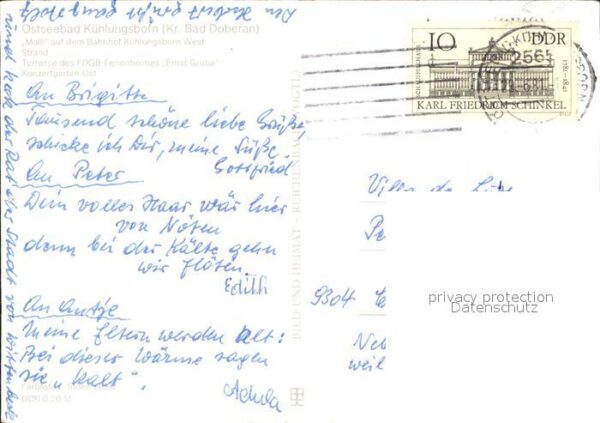 Ostseebad Kühlungsborn (Kr. Bad Doberan)
"Molli" auf dem Bahnhof Kühlungsborn West
Strand
Terrasse des FDGB-Ferienheimes „Ernst Grube"
Konzertgarten Ost
An Brigitte
Tausend schöne liebe Grüße
schicke ich Dir, meine Süße.
Gottfried
An Peter
Dein volles Haar wär hier
von Nöten
denn bei der Kälte gehn
wir flöten.
Edith
An Antje
Meine Eltern werden alt:
Bei dieser Wärme sagen
sie „kalt".
und der Rat der Stadt von
BILD UND HEIMAT REICHENBACH
10 DDR
KARL FRIEDRICH SCHINKEL
1781-1841
2565
Villa
9304
privacy protection
Datenschutz
weil